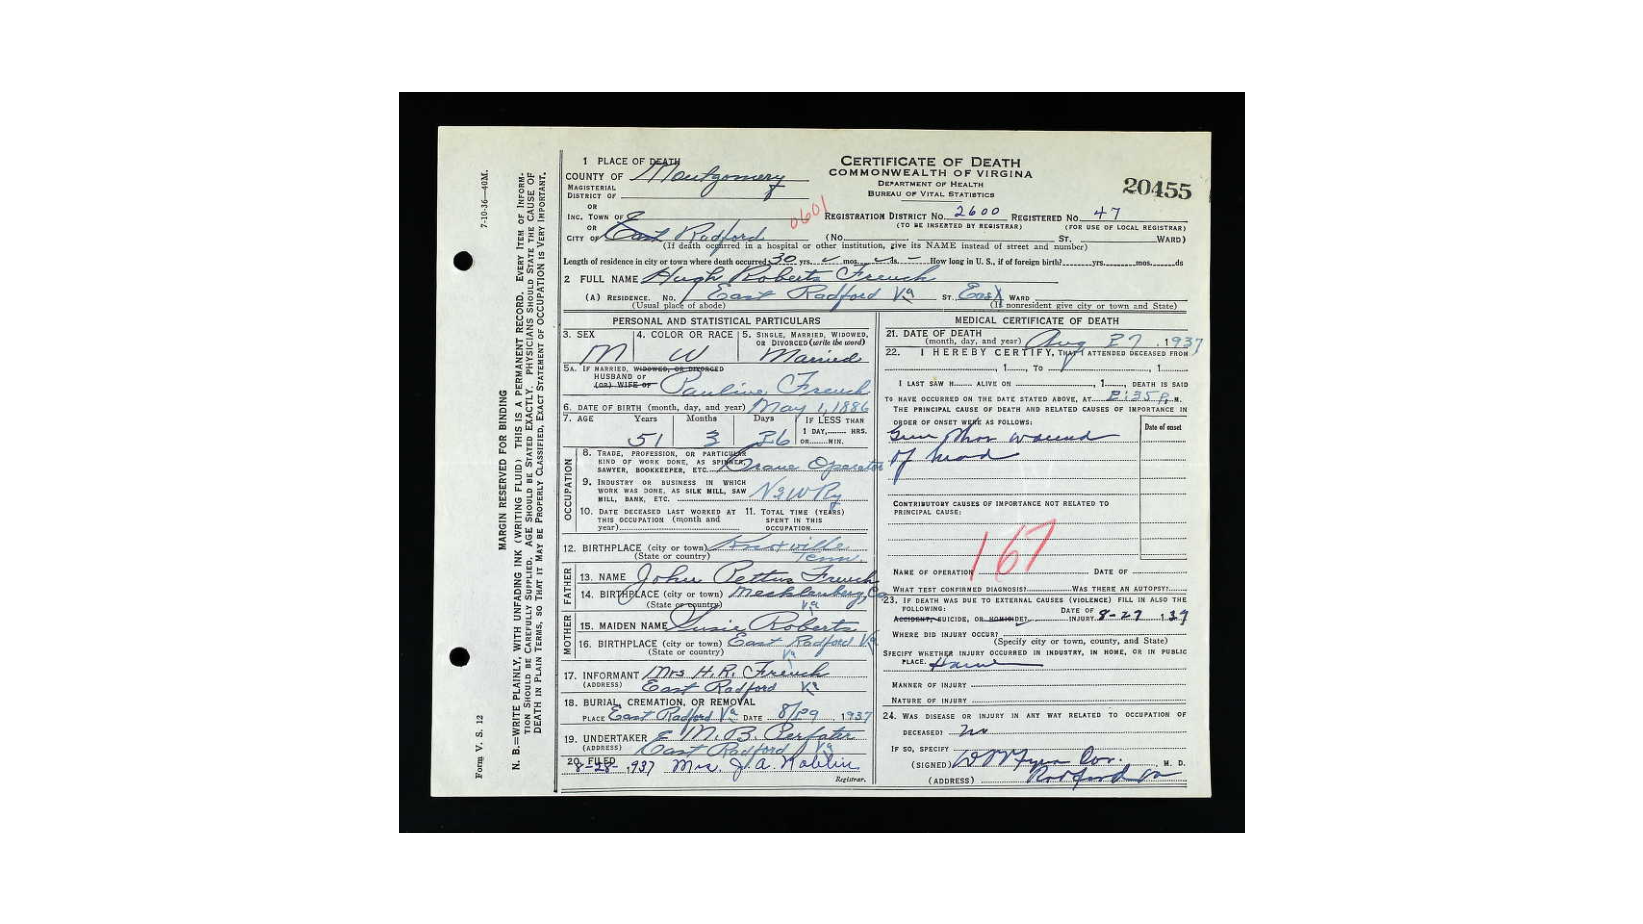 1 PLACE OF DEATH
COUNTY OF Montgomery
MAGISTERIAL
DISTRICT OF
OR
INC. TOWN OF
OR
CITY OF East Radford
0601
CERTIFICATE OF DEATH
COMMONWEALTH OF VIRGINA
DEPARTMENT OF HEALTH
BUREAU OF VITAL STATISTICS
20455
REGISTRATION DISTRICT NO. 2600 REGISTERED NO. 47
(TO BE INSERTED BY REGISTRAR) (FOR USE OF LOCAL REGISTRAR)
(No. ST. WARD)
(If death occurred in a hospital or other institution, give its NAME instead of street and number)
Length of residence in city or town where death occurred 30 yrs. mos. ds. How long in U. S., if of foreign birth? yrs. mos. ds
2 FULL NAME Hugh Roberts French
(A) RESIDENCE. No. East Radford Va ST. East WARD
(Usual place of abode) (If nonresident give city or town and State)
PERSONAL AND STATISTICAL PARTICULARS
3. SEX M
4. COLOR OR RACE W
5. SINGLE, MARRIED, WIDOWED,
OR DIVORCED (write the word)
Married
5A. IF MARRIED, WIDOWED, OR DIVORCED
HUSBAND OF
(OR) WIFE OF Pauline French
6. DATE OF BIRTH (month, day, and year) May 1, 1886
7. AGE Years Months Days IF LESS THAN
1 DAY, HRS.
51 3 26 OR MIN.
OCCUPATION
8. TRADE, PROFESSION, OR PARTICULAR
KIND OF WORK DONE, AS SPINNER,
SAWYER, BOOKKEEPER, ETC. Crane Operator
9. INDUSTRY OR BUSINESS IN WHICH
WORK WAS DONE, AS SILK MILL, SAW
MILL, BANK, ETC. N & W Ry
10. DATE DECEASED LAST WORKED AT
THIS OCCUPATION (month and
year)
11. TOTAL TIME (YEARS)
SPENT IN THIS
OCCUPATION
12. BIRTHPLACE (city or town) Knoxville
(State or country) Tenn.
FATHER
13. NAME John Pettus French
14. BIRTHPLACE (city or town) Mecklenburg, Co
(State or country) Va
MOTHER
15. MAIDEN NAME Susie Roberts
16. BIRTHPLACE (city or town) East Radford Va
(State or country) Va
17. INFORMANT Mrs H. R. French
(ADDRESS) East Radford Va
18. BURIAL, CREMATION, OR REMOVAL
PLACE East Radford Va DATE 8/29, 1937
19. UNDERTAKER M. B.
(ADDRESS) East Radford Va
20. FILED
8-28-, 937 Mrs. J. A.
Registrar.
MEDICAL CERTIFICATE OF DEATH
21. DATE OF DEATH
(month, day, and year) Aug 27, 1937
22. I HEREBY CERTIFY, THAT I ATTENDED DECEASED FROM
, 1 , TO , 1
I LAST SAW H ALIVE ON , 1 , DEATH IS SAID
TO HAVE OCCURRED ON THE DATE STATED ABOVE, AT 2:35 P. M.
THE PRINCIPAL CAUSE OF DEATH AND RELATED CAUSES OF IMPORTANCE IN
ORDER OF ONSET WERE AS FOLLOWS:
Date of onset
Gun shot wound
of head
CONTRIBUTORY CAUSES OF IMPORTANCE NOT RELATED TO
PRINCIPAL CAUSE:
167
NAME OF OPERATION DATE OF
WHAT TEST CONFIRMED DIAGNOSIS? WAS THERE AN AUTOPSY?
23. IF DEATH WAS DUE TO EXTERNAL CAUSES (VIOLENCE) FILL IN ALSO THE
FOLLOWING: DATE OF
ACCIDENT, SUICIDE, OR HOMICIDE? INJURY 8-27 1937
WHERE DID INJURY OCCUR?
(Specify city or town, county, and State)
SPECIFY WHETHER INJURY OCCURRED IN INDUSTRY, IN HOME, OR IN PUBLIC
PLACE. Home
MANNER OF INJURY
NATURE OF INJURY
24. WAS DISEASE OR INJURY IN ANY WAY RELATED TO OCCUPATION OF
DECEASED? No
IF SO, SPECIFY
(SIGNED) M. D.
(ADDRESS) Radford Va
MARGIN RESERVED FOR BINDING
N. B.—WRITE PLAINLY, WITH UNFADING INK (WRITING FLUID) THIS IS A PERMANENT RECORD. EVERY ITEM OF INFORM-
TION SHOULD BE CAREFULLY SUPPLIED. AGE SHOULD BE STATED EXACTLY. PHYSICIANS SHOULD STATE THE CAUSE OF
DEATH IN PLAIN TERMS, SO THAT IT MAY BE PROPERLY CLASSIFIED. EXACT STATEMENT OF OCCUPATION IS VERY IMPORTANT.
Form V. S. 12
7-10-36—40M.